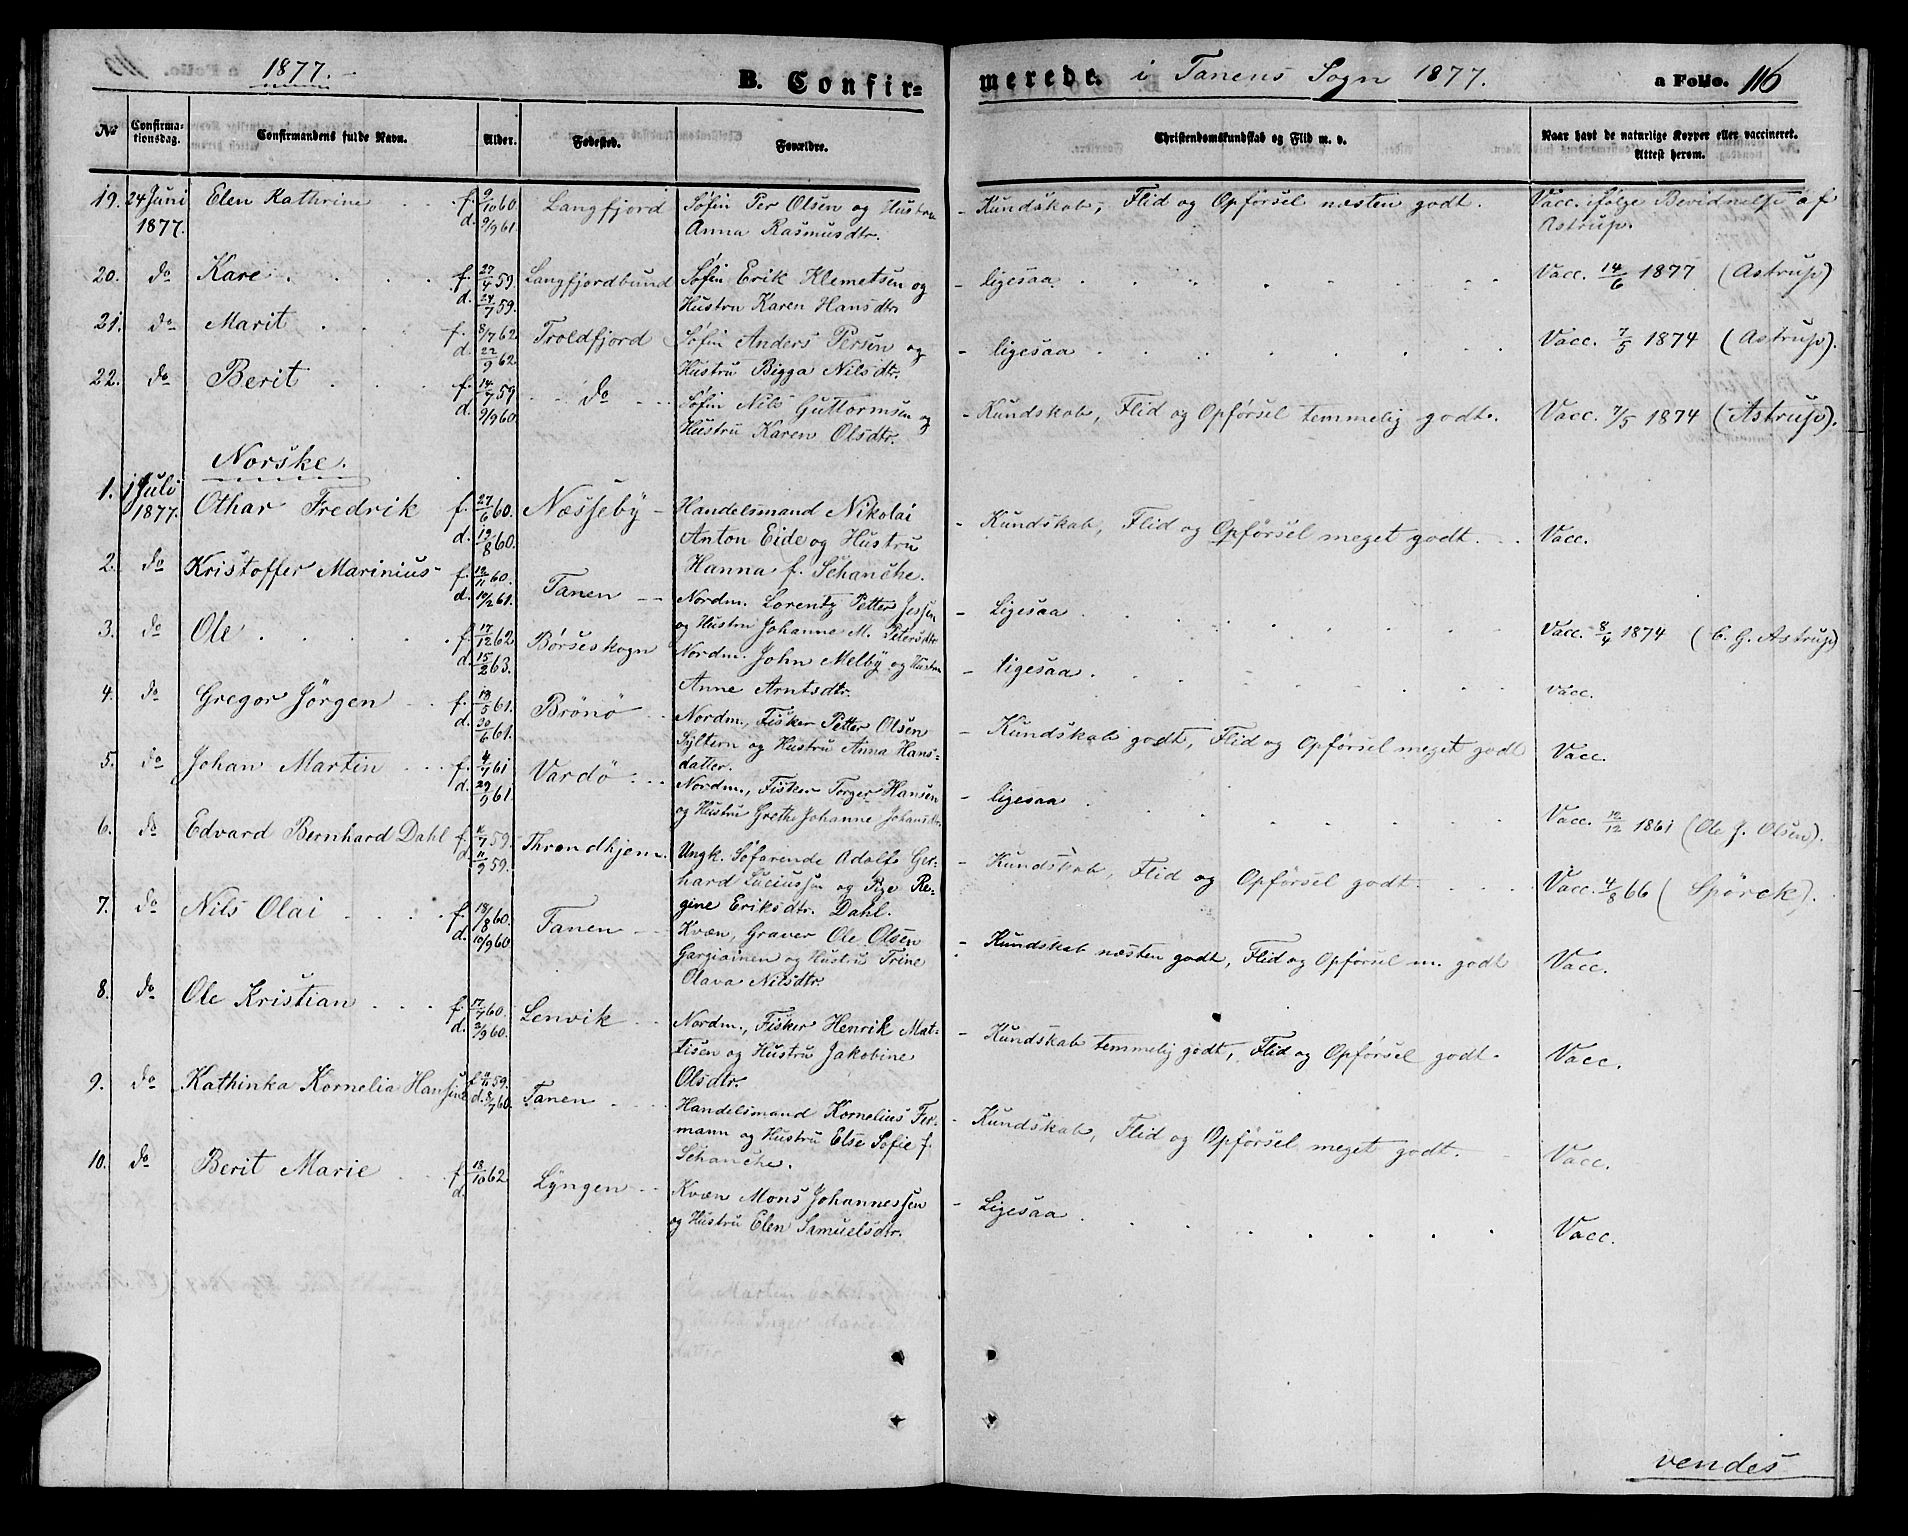 1877. B. Confirmerede. i Tanens Sogn 1877. a Folio. 116
No Confirmationsdag. Confirmandens fulde Navn. Alder. Fødested. Forældre. Christendomskundskab og Flid m. v. Naar havt de naturlige Kopper eller vaccineret. Attest herom.
19. 24 Juni Elen Kathrine f. 9/10 60. Langfjord Søfin Per Olsen og Hustru - Kundskab, Flid og Opførsel næsten godt. Vacc. ifølge Bevidnelse af
1877. d. 9/9 61. Anna Rasmusdtr. Astrup.
20. do Kare f. 27/4 59. Langfjordbund Søfin Erik Klemetsen og - ligesaa Vacc. 14/6 1877 (Astrup)
d. 24/7 59. Hustru Karen Hansdtr.
21. do Marit f. 8/7 62. Troldfjord Søfin Anders Persen og - ligesaa Vacc. 7/5 1874 (Astrup).
d. 22/9 62. Hustru Bigga Nilsdtr.
22. do Berit f. 14/7 59. do Søfin Nils Guttormsen og - Kundskab, Flid og Opførsel temmelig godt. Vacc. 7/5 1874 (Astrup).
d. 9/9 60. Hustru Karen Olsdtr.
Norske.
1. 1 Juli Othar Fredrik f. 27/6 60. Næsseby - Handelsmand Nikolai - Kundskab, Flid og Opførsel meget godt. Vacc.
1877. d. 19/8 60. Anton Eide og Hustru
Hanna f. Schanche.
2. do Kristoffer Marinius f. 12/11 60. Tanen Nordm. Lorentz Petter Jessen - Ligesaa Vacc. 8/4 1874 (C. G. Astrup)
d. 10/2 61. og Hustru Johanne M. Petersdtr
3. do Ole f. 17/12 62. Børseskogn Nordm. John Melby og Hustru - ligesaa vacc.
d. 15/2 63. Anne Arntsdtr.
4. do Gregor Jørgen f. 18/5 61. Brønø Nordm., Fisker Petter Olsen - Kundskab godt, Flid og Opførsel meget godt Vacc.
d. 30/6 61. Syltern og Hustru Anna Hans-
datter.
5. do Johan Martin f. 4/7 61 Vardø Nordm., Fisker Torger Hansen - ligesaa Vacc. 12/12 1861 (Ole J. Olsen).
d. 29/9 61. og Hustru Grethe Johanne Johansdtr.
6. do Edvard Bernhard Dahl f. 11/7 59. Throndhjem. Ungk. Søfarende Adolf Ger- - Kundskab, Flid og Opførsel godt. Vacc. 4/8 66 (Spørck).
d. 11/9 59. hard Luciussen og Pige Re-
gine Eriksdtr. Dahl.
7. do Nils Olai f. 18/8 60. Tanen Kvæn, Graver Ole Olsen - Kundskab næsten godt, Flid og Opførsel m. godt Vacc.
d. 10/9 60 Gargiainen og Hustru Trine
Olava Nilsdtr.
8. do Ole Kristian f. 17/7 60. Lenvik Nordm., Fisker Henrik Mat- - Kundskab temmelig godt, Flid og Opførsel godt. Vacc.
d. 2/9 60. tisen og Hustru Jakobine
Olsdtr.
9. do Kathinka Kornelia Hansine f. 11/11 59. Tanen Handelsmand Kornelius Fer- - Kundskab, Flid og Opførsel meget godt. Vacc.
d. 8/7 60. mann og Hustru Else Sofie f.
Schanche.
10. do Berit Marie f. 18/10 62 Lyngen Kvæn Mons Johannessen - Ligesaa Vacc.
d. og Hustru Elen Samuelsdtr.
vendes